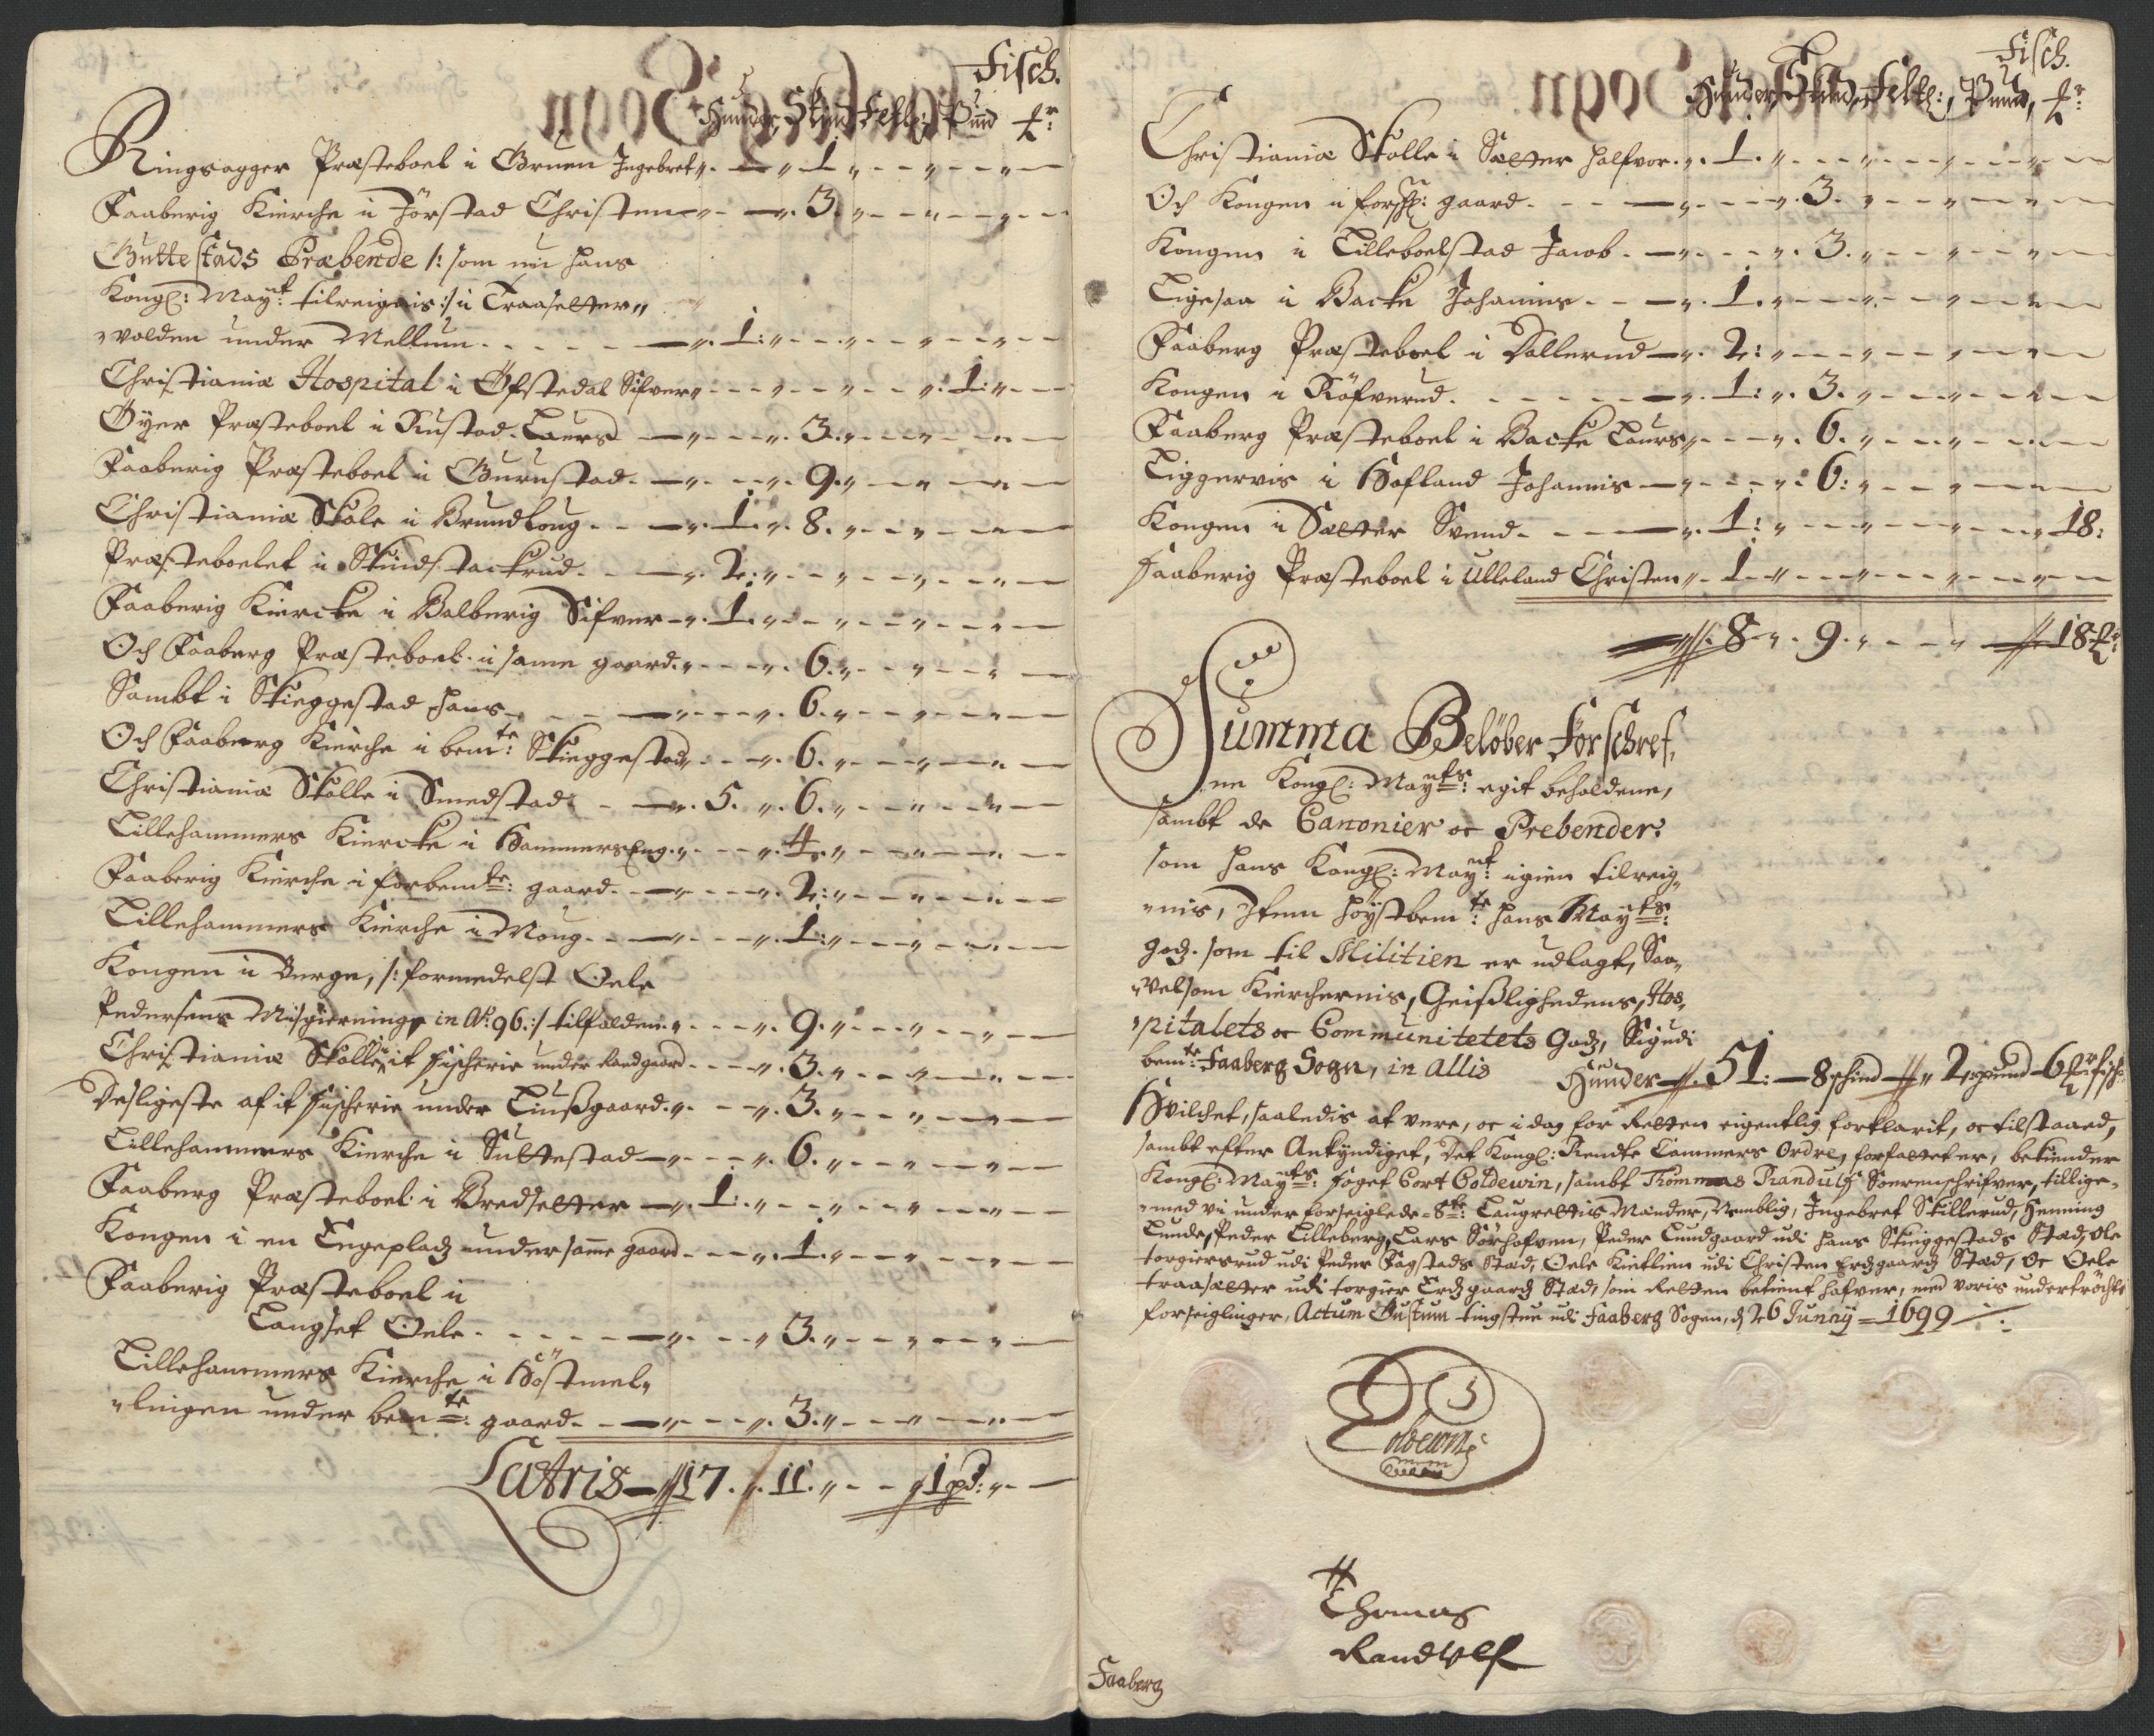 Fisch.
Hunder, Skind, Felle, Pund ℔r:
Ringsagger Præsteboel i Gruen Ingebret 1
Faaberig Kierche i Jörstad Christen 3.
Guttestads Præbende /: som nu hans
Kongl: Mayt: tilreignis :/ i Traaselter„
„volden under Mellum 1:
Christiania Hospital i Öfstedal Sifver 1:
Öyer Præsteboel i Rustad Laurs 3.
Faaberig Præsteboel i Gurustad 9.
Christiania Skole i Brundloug 1. 8.
Præsteboelet i Skindstackrud 2:
Faaberig Kiercke i Balberig Sifver 1.
Och Faaberg Præsteboel i same gaard 6.
Sambt i Skieggestad Hans 6.
Och Faaberg Kierche i bemte: Skieggestad 6.
Christiania Skolle i Smedstad 5. 6.
Lillehammers Kiercke i HammersEng 4.
Faaberig Kierche i forbemte: gaard 2:
Lillehammers Kierche i Moug 1:
Kongen i Berge, /: formedelst Oele
Pedersens Misgierninge in Ao: 96 :/ tilfalden 9.
Christiania Skolle i it fischerie under Randgaard 3.
Desligeste af it fischerie under Liusgaard 3.
Lillehammers Kierche i Sultestad 6.
Faaberg Præsteboel i Bredselter 1:
Kongen i en Engeplads under same gaard 1.
Faaberig Præsteboel i
Langset Oele 3.
Lillehammers Kierche i Höstmel„
„lingen under bemte: gaard 3.
Latris 17. 11. 1 pd:
Fisch.
Hunder, Skind, Felle:, Pund, ℔r:
Christiania Skolle i Sælter Halfvor 1.
Och Kongen i forschr: gaard 3.
Kongen i Lilleboelstad Jacob 3.
Ligesaa i Backe Johannis 1.
Faaberg Præsteboel i Dallerud 2:
Kongen i Röfverud 1: 3.
Faaberg Præsteboel i Backe Laurs 6.
Liggervis i Hofland Johannis 6:
Kongen i Sælter Svend 1: 18:
Faaberig Præsteboel i Ulleland Christen 1
8 9. 18 ℔r:
Summa Belöber Forschref„
ne Kongl: Mayts: egit beholdene,
sambt de Canonier oc Prebender.
som hans Kongl: Mayt: igien tilreig„
„nis, Item höystbemte: hans Mayts:
gods som til Militien er udlagt, Saa„
„velsom Kierchernis, Geistlighedens, Hos„
„pitalets oc Communitetets Gods, Vigudi
bemte: Faaberg Sogn, in Allis Hunder 51: 8 schind 2 pund 6 ℔r fisch:
Hvilchet, saaledis at vere, oc i dag for Retten eigentlig forklarit, oc tilstaaed,
sambt efter Ankyndiget, det Kongl: Rendte Cammers Ordre, forfatteter, bekiender
Kongl: Mayts: foget Cort Coldewin, sambt Thommas Randulf Soerenschrifver, tillige„
„med vi under forseiglede 8te: Laugrettis Mænder, Nemblig, Ingebret Skillerud, Henning
Lunde, Peder Lilleberg, Lars Sörhofven, Peder Lundgaard udi Hans Skieggestads Stæd, Ole
torgiersrud udi Peder Fagstads Stæd, Oele Kieltien udi Christen Erdsgaards Stæd, Oc Oele
traasælter udi torgier Erdsgaards Stæd, som Retten betient hafver, med voris undertrögte
forseiglinger, Actum Gustum tingstue udi Faaberg Sogen, d 26 Junny 1699
Coldewin
Thomas
Randulf
Faaberg